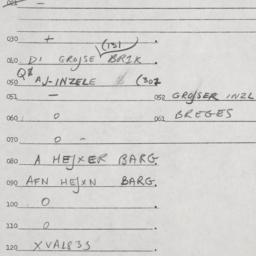 001 —
030 +
(131)
040 DI GROJSE BRIK
050 AJ-INZELE (307
051 — 052 GROJSER INZL
060 0 061 BREGES
070 0 -
080 A HEJXER BARG
090 AFN HEJXN BARG
100 0
110 0
120 XVAL833